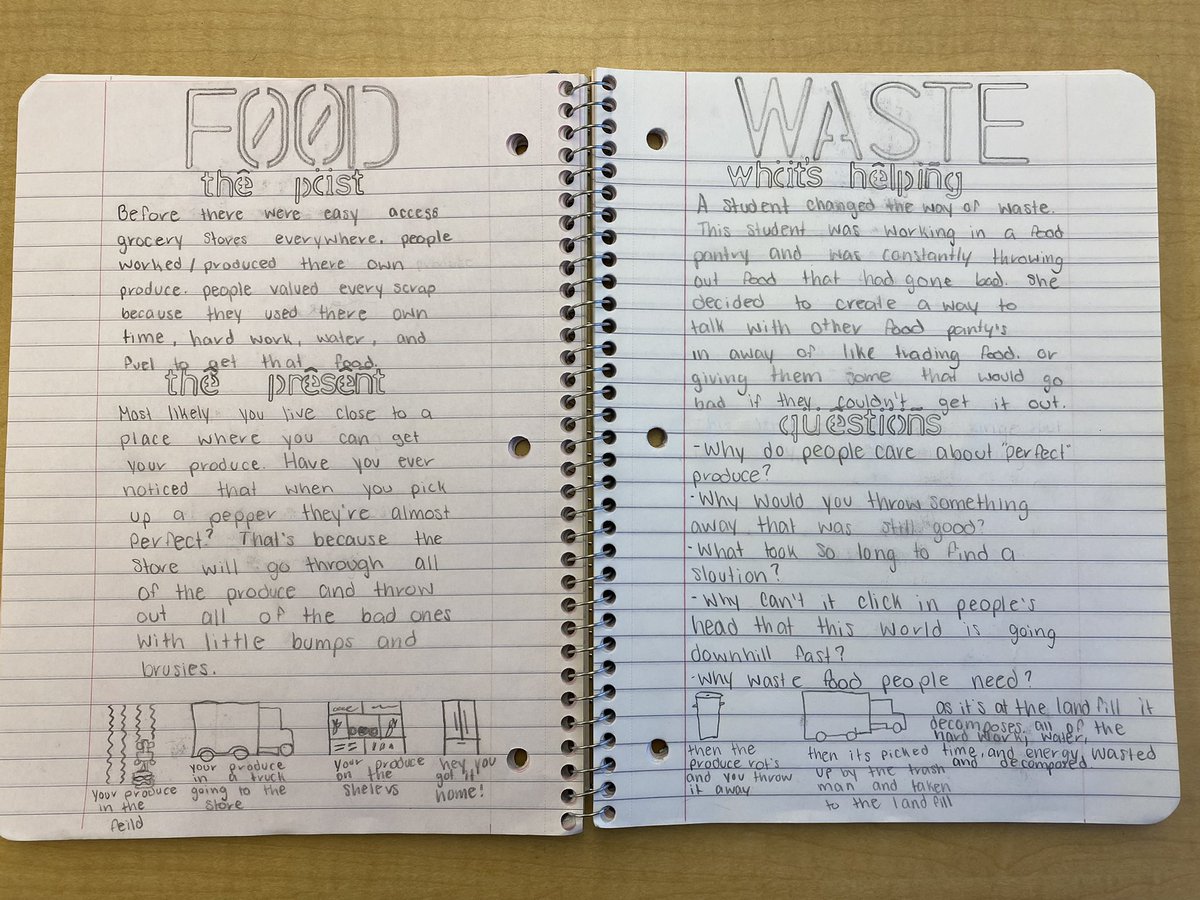 FOOD
the past
Before there were easy access
grocery stores everywhere. people
worked/produced there own
produce. people valued every scrap
because they used there own
time, hard work, water, and
fuel to get that food.
the present
Most likely you live close to a
place where you can get
your produce. Have you ever
noticed that when you pick
up a pepper they're almost
perfect? That's because the
store will go through all
of the produce and throw
out all of the bad ones
with little bumps and
brusies.
your produce
in the
feild
your produce
in a truck
going to the
store
your produce
on the
shelevs
hey you
got it
home!
WASTE
what's helping
A student changed the way of waste.
This student was working in a food
pantry and was constantly throwing
out food that had gone bad. she
decided to create a way to
talk with other food panty's
in away of like trading food. or
giving them some that would go
bad if they couldn't get it out.
questions
-Why do people care about "perfect"
produce?
-Why would you throw something
away that was still good?
-What took so long to find a
sloution?
-Why can't it click in people's
head that this world is going
downhill fast?
-why waste food people need?
then the
produce rot's
and you throw
it away
then its picked
up by the trash
man and taken
to the landfill
as it's at the landfill it
decomposes. all of the
hard work, water,
time, and energy, wasted
and decomposed